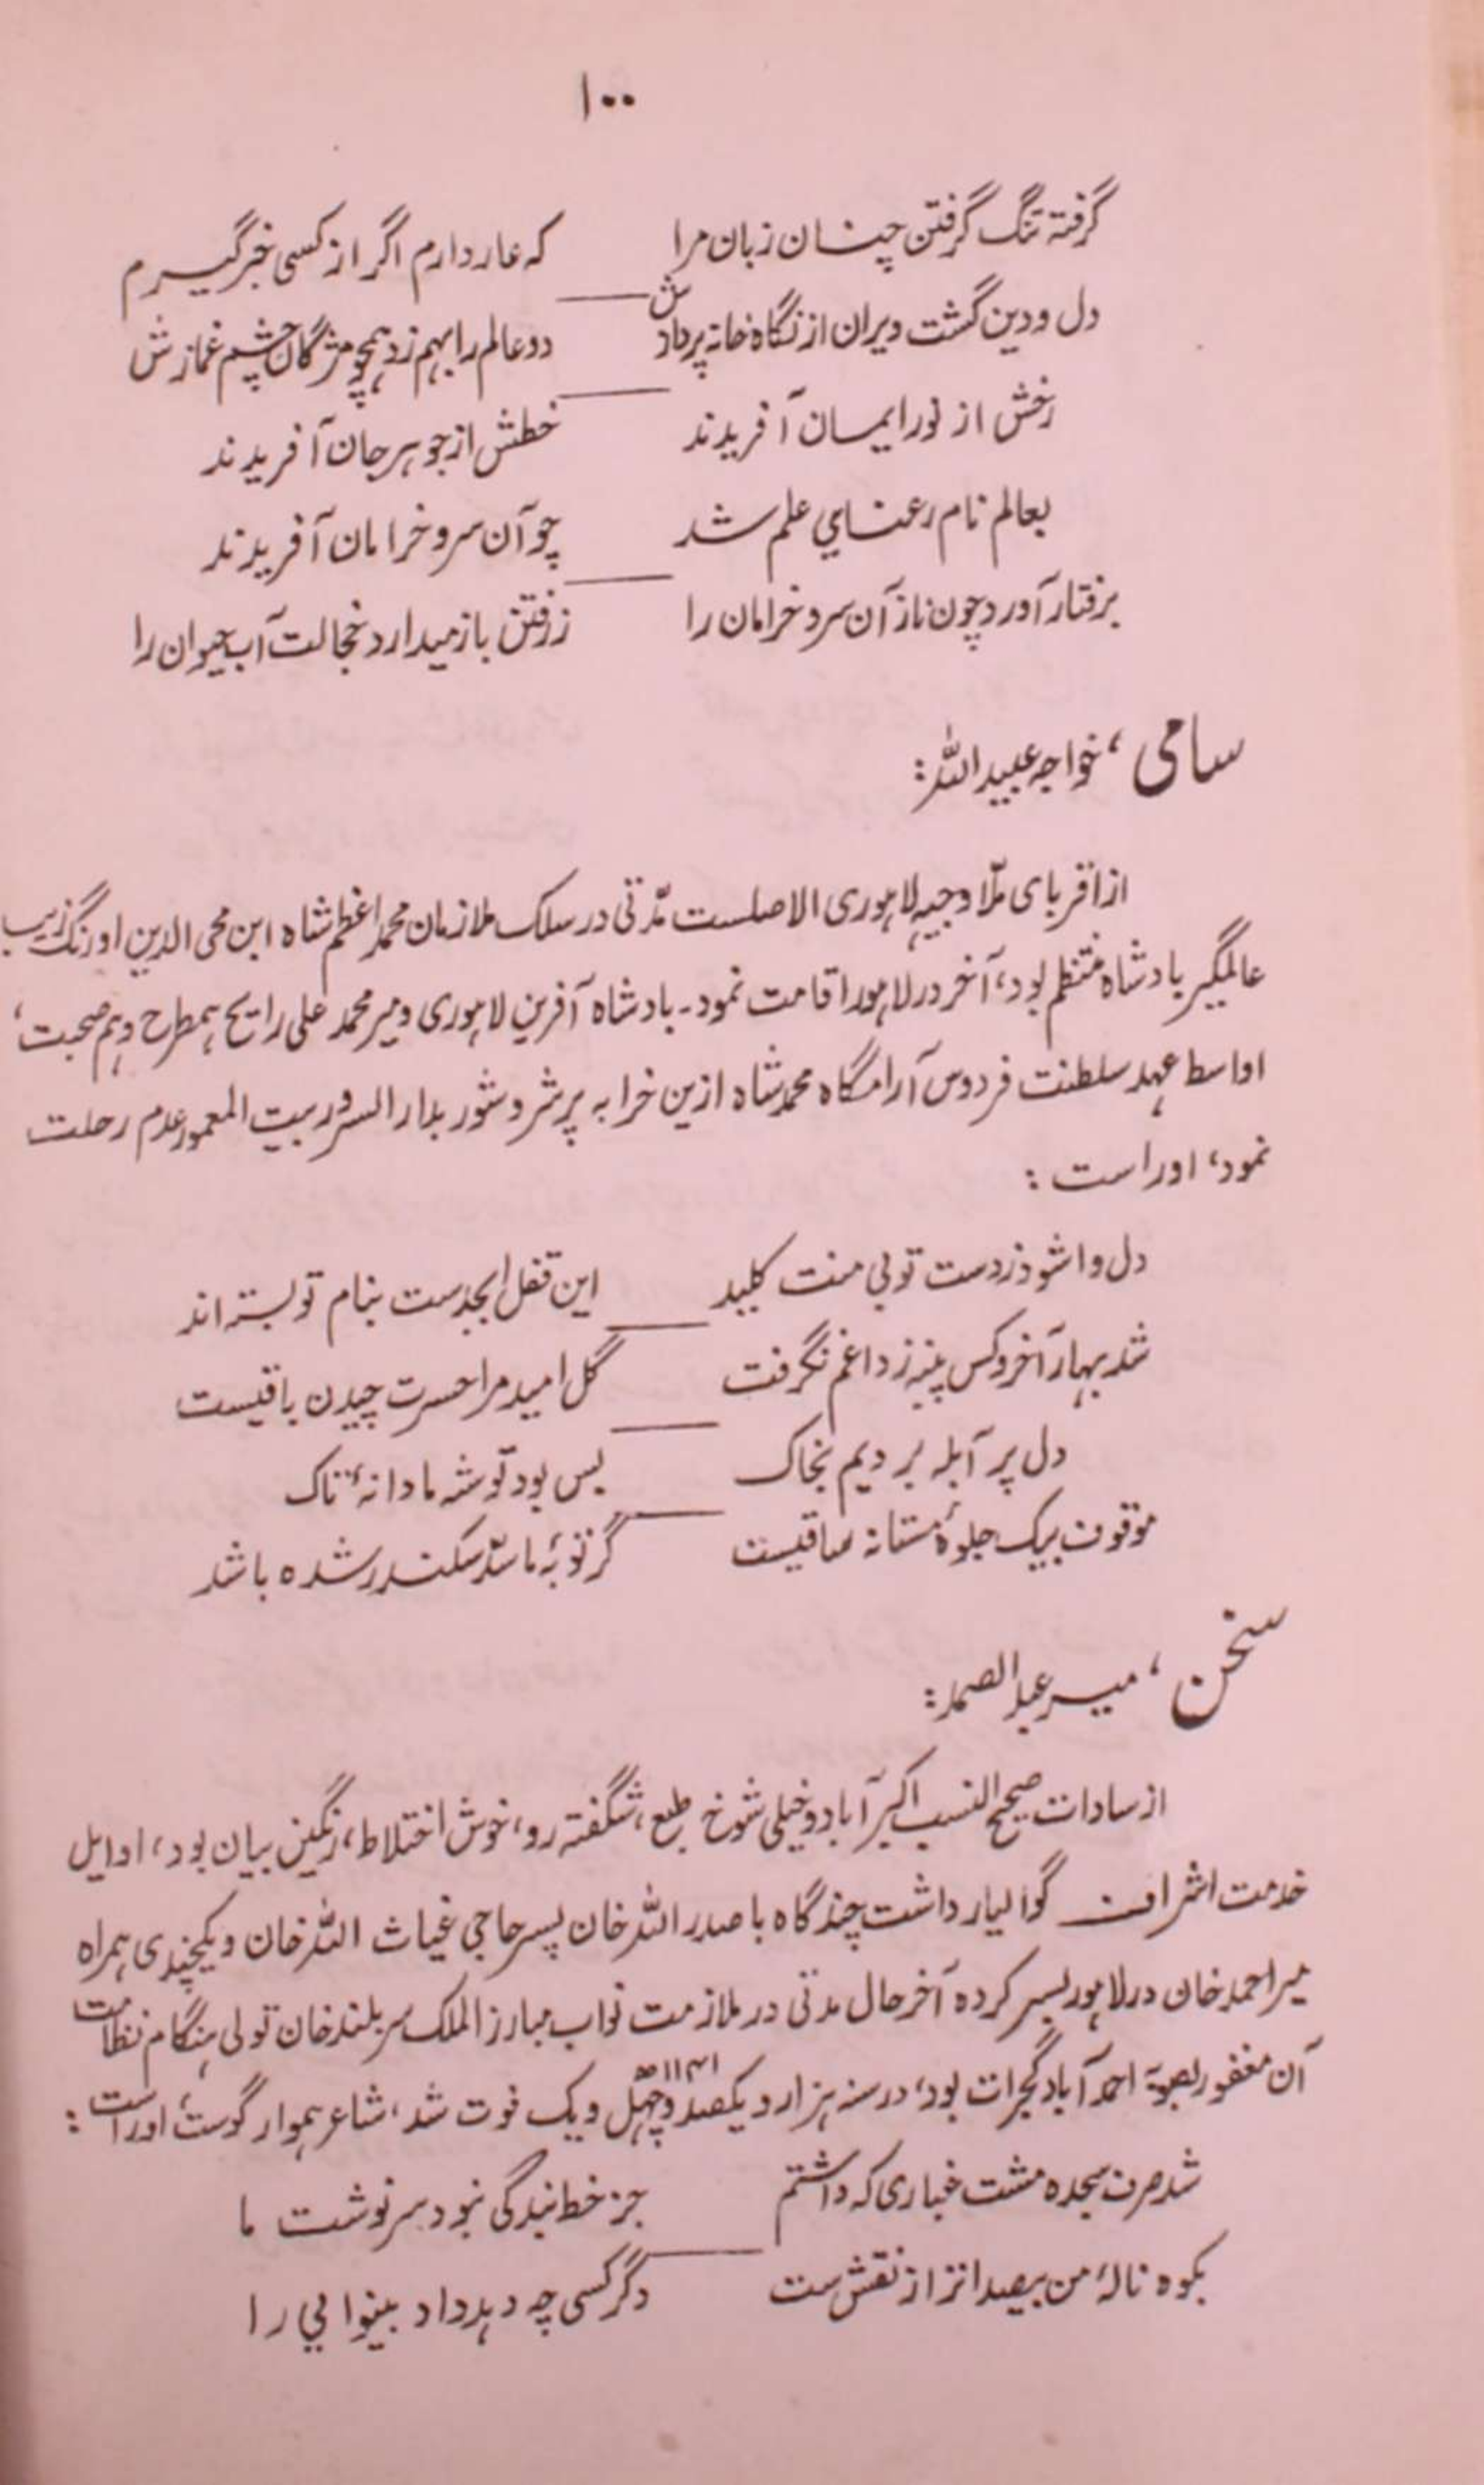 ۱۰۰
گرفته تنگ گرفتن چنان زبان مرا که عار دارم اگر از کسی خبر گیرم
دل و دین گشت ویران از نگاه خانه پردازش دو عالم را بهم زد همچو مژگان چشم غمازش
رخش از نور ایمان آفریدند خطش از جوهر جان آفریدند
بعالم نام رعنایي علم شد چو آن سرو خرامان آفریدند
برفتار آورد چون ناز آن سرو خرامان را ز رفتن باز میدارد خجالت آب حیوان را
سامی، خواجه عبید الله:
از اقربای ملّا وجیه لاہوری الاصلست مدّتی در سلک ملازمان محمد اعظم شاه ابن محی الدین اورنگ زیب
عالمگیر بادشاه منتظم بود، آخر در لاہور اقامت نمود۔ بادشاه آفرین لاہوری و میر محمد علی رایح ہمطرح و ہم صحبت،
اواسط عہد سلطنت فردوس آرامگاه محمد شاه ازین خرابه پر شر و شور بدار السرور بیت المعمور عدم رحلت
نمود، اوراست:
دل واشود ز دست تو بی منت کلید این قفل ابجدست بنام تو بسته اند
شد بہار آخر و کس پنبه ز داغم نگرفت گل امید مرا حسرت چیدن باقیست
دل پر آبله بردیم بخاک بس بود توشه ما دانهٔ تاک
موقوف بیک جلوهٔ مستانه ساقیست گر توبهٔ ما سدّ سکندر شده باشد
سخن، میر عبد الصمد:
از سادات صحیح النسب اکبر آباد و خیلی شوخ طبع، شگفته رو، خوش اختلاط، رنگین بیان بود، اوایل
خدمت اشراف گوالیار داشت چندگاه با صدر الله خان پسر حاجي غیاث الله خان و یکچندی ہمراه
میر احمد خان در لاہور بسر کرده آخر حال مدتی در ملازمت نواب مبارز الملک سر بلند خان تونی ہنگام نظامت
آن مغفور بصوبۀ احمد آباد گجرات بود، در سنه ہزار و یکصد و چہل و یک ۱۱۴۱ھ فوت شد، شاعر ہموار گوست، اوراست:
شد صرف سجده مشت غباری که داشتم جز خط بندگی نبود سرنوشت ما
بکوه نالهٔ من بیصدا تر از نقش ست دگر کسی چه دہد داد بینوایي را